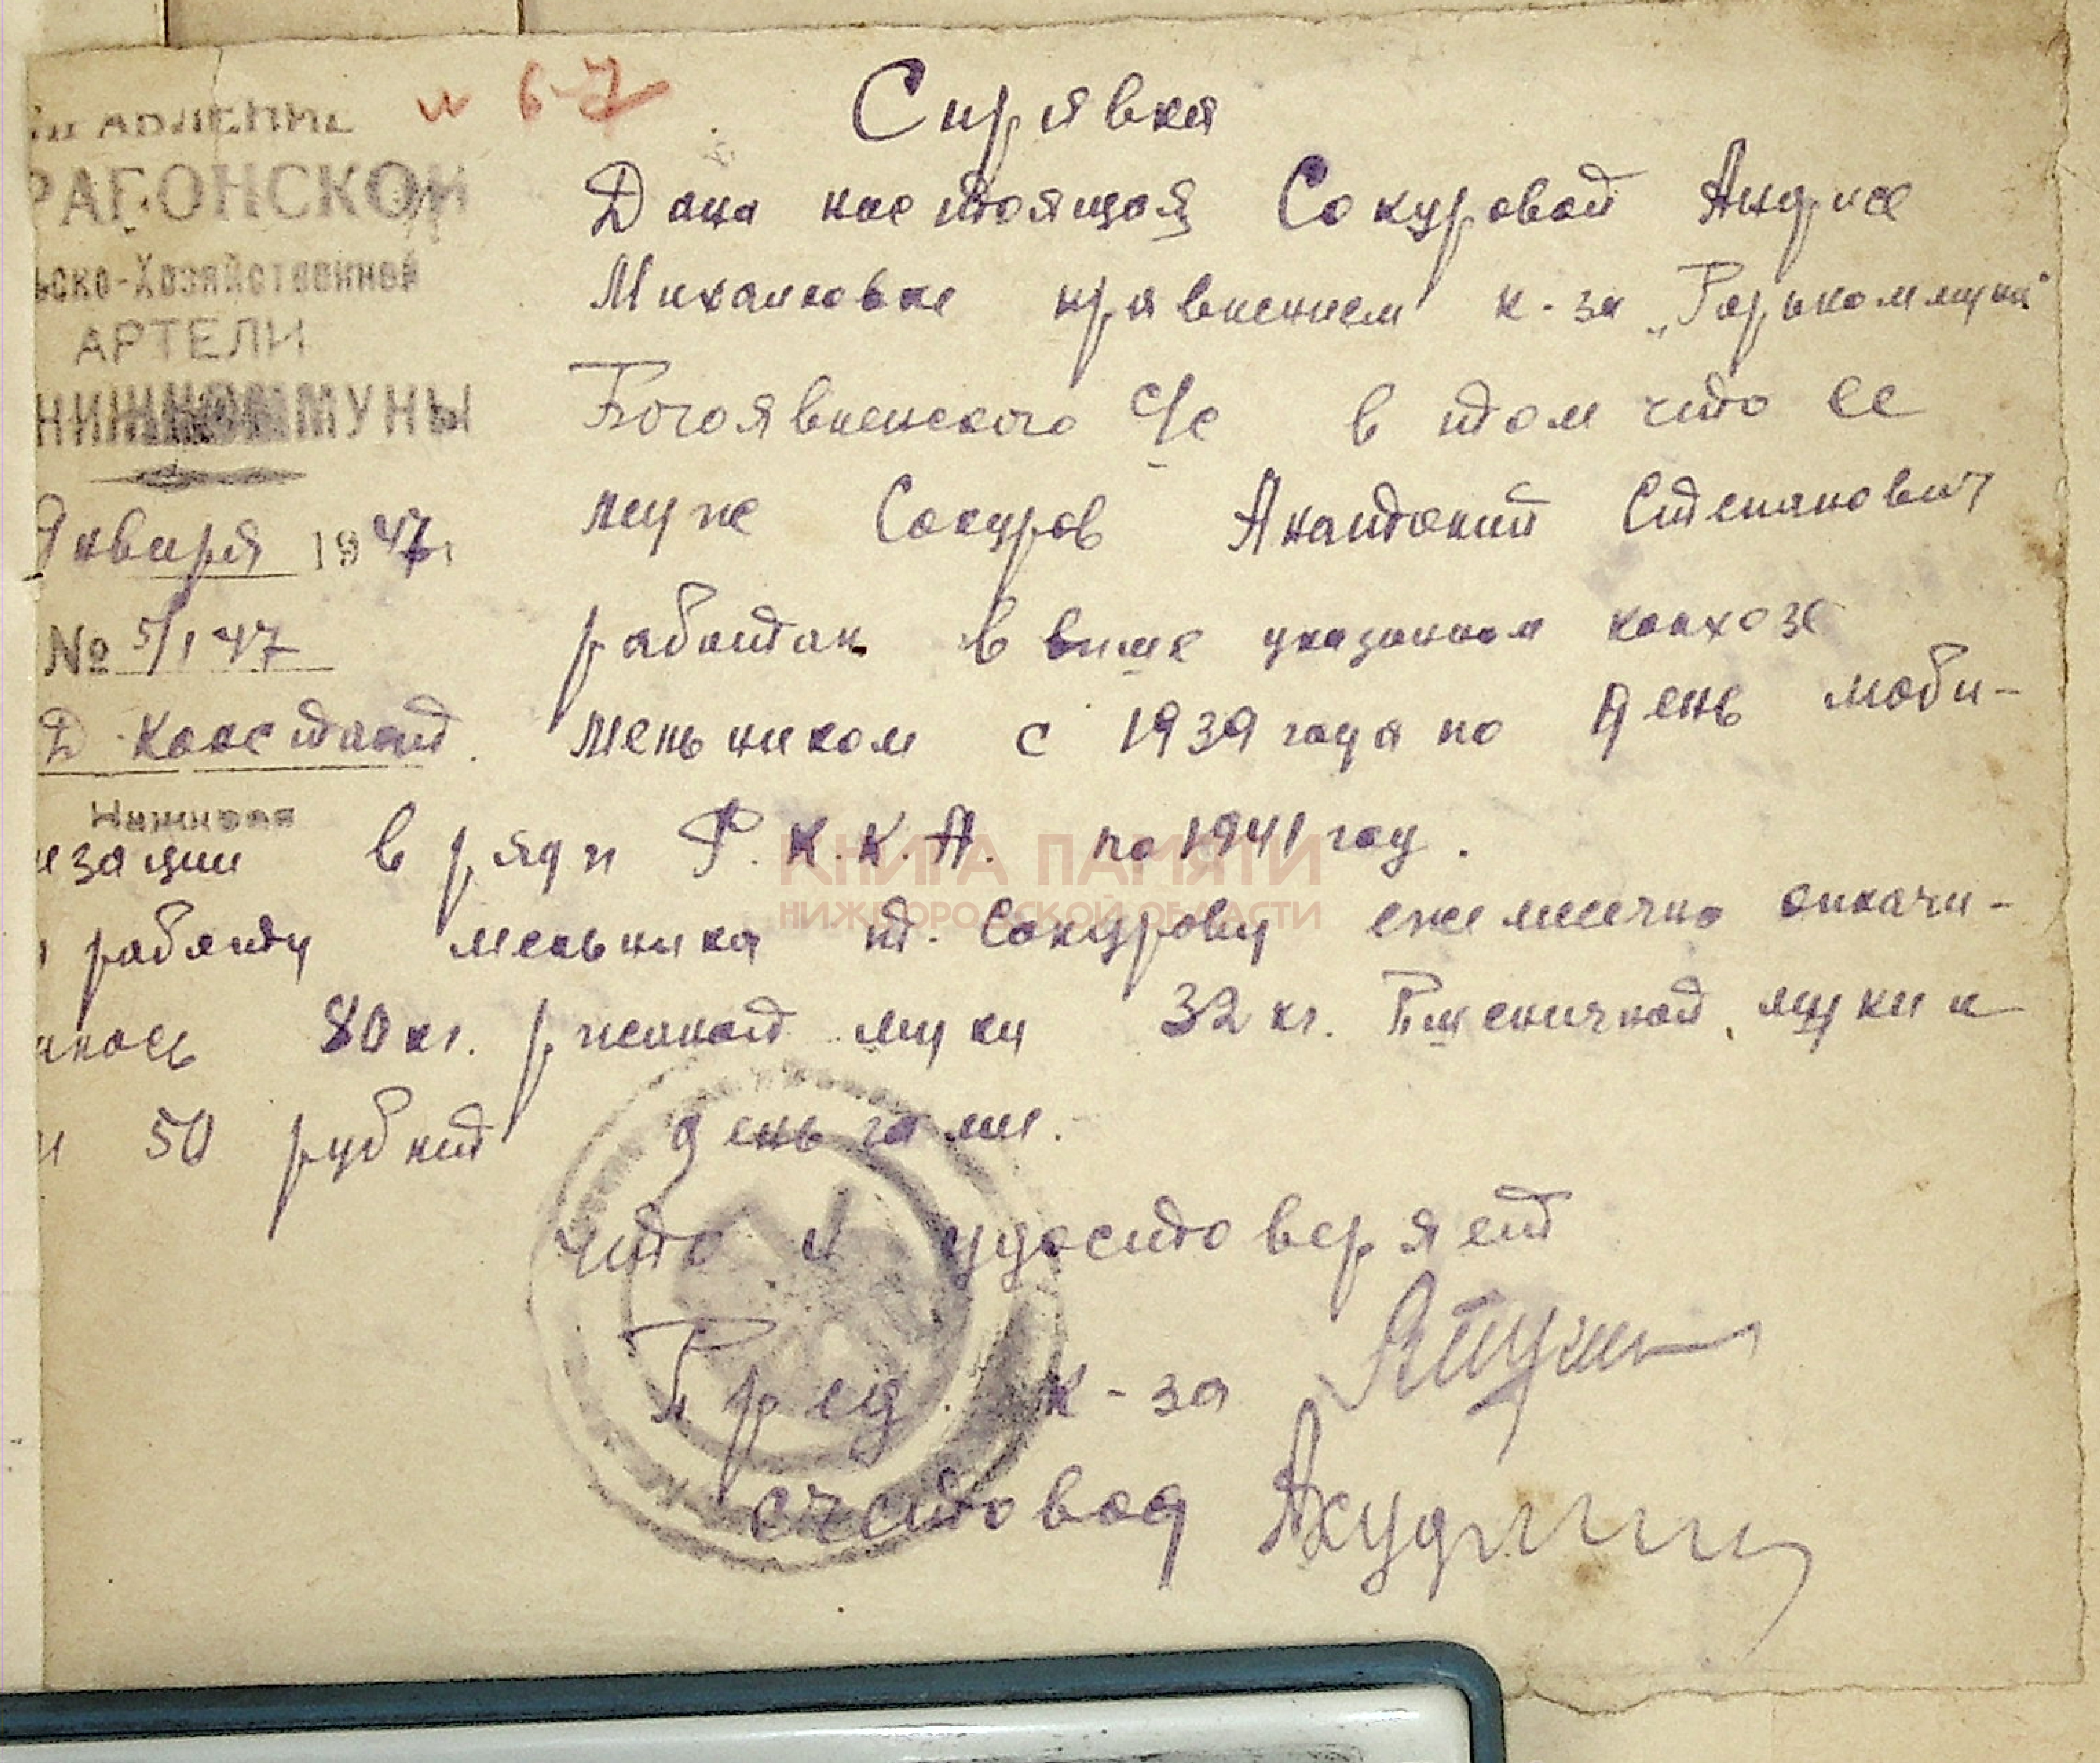 и 67
АВЛЕНИЕ
РАГОНСКОЙ
ЬСКО-Хозяйственной
АРТЕЛИ
МУНЫ
Января 1947 г.
№ 5/I 47
Д. Констант.
Справка
Дана настоящая Сокуровой Андрее
Михайловне правлением к-за „Горькоммуна"
Богоявленского с/с в том что ее
муж Сокуров Анатолий Степанович
работал в выше указанном колхозе
мельником с 1939 года по день моби-
лизации в ряды Р.К.К.А. по 1941 год.
работу мельника т. Сокурову ежемесечно оплачи-
валось 80 кг. ржаной муки 32 кг. Пшеничной муки и
и 50 рублей деньгами.
что и удостоверяет
Пред. к-за
счетовод
КНИГА ПАМЯТИ
НИЖЕГОРОДСКОЙ ОБЛАСТИ